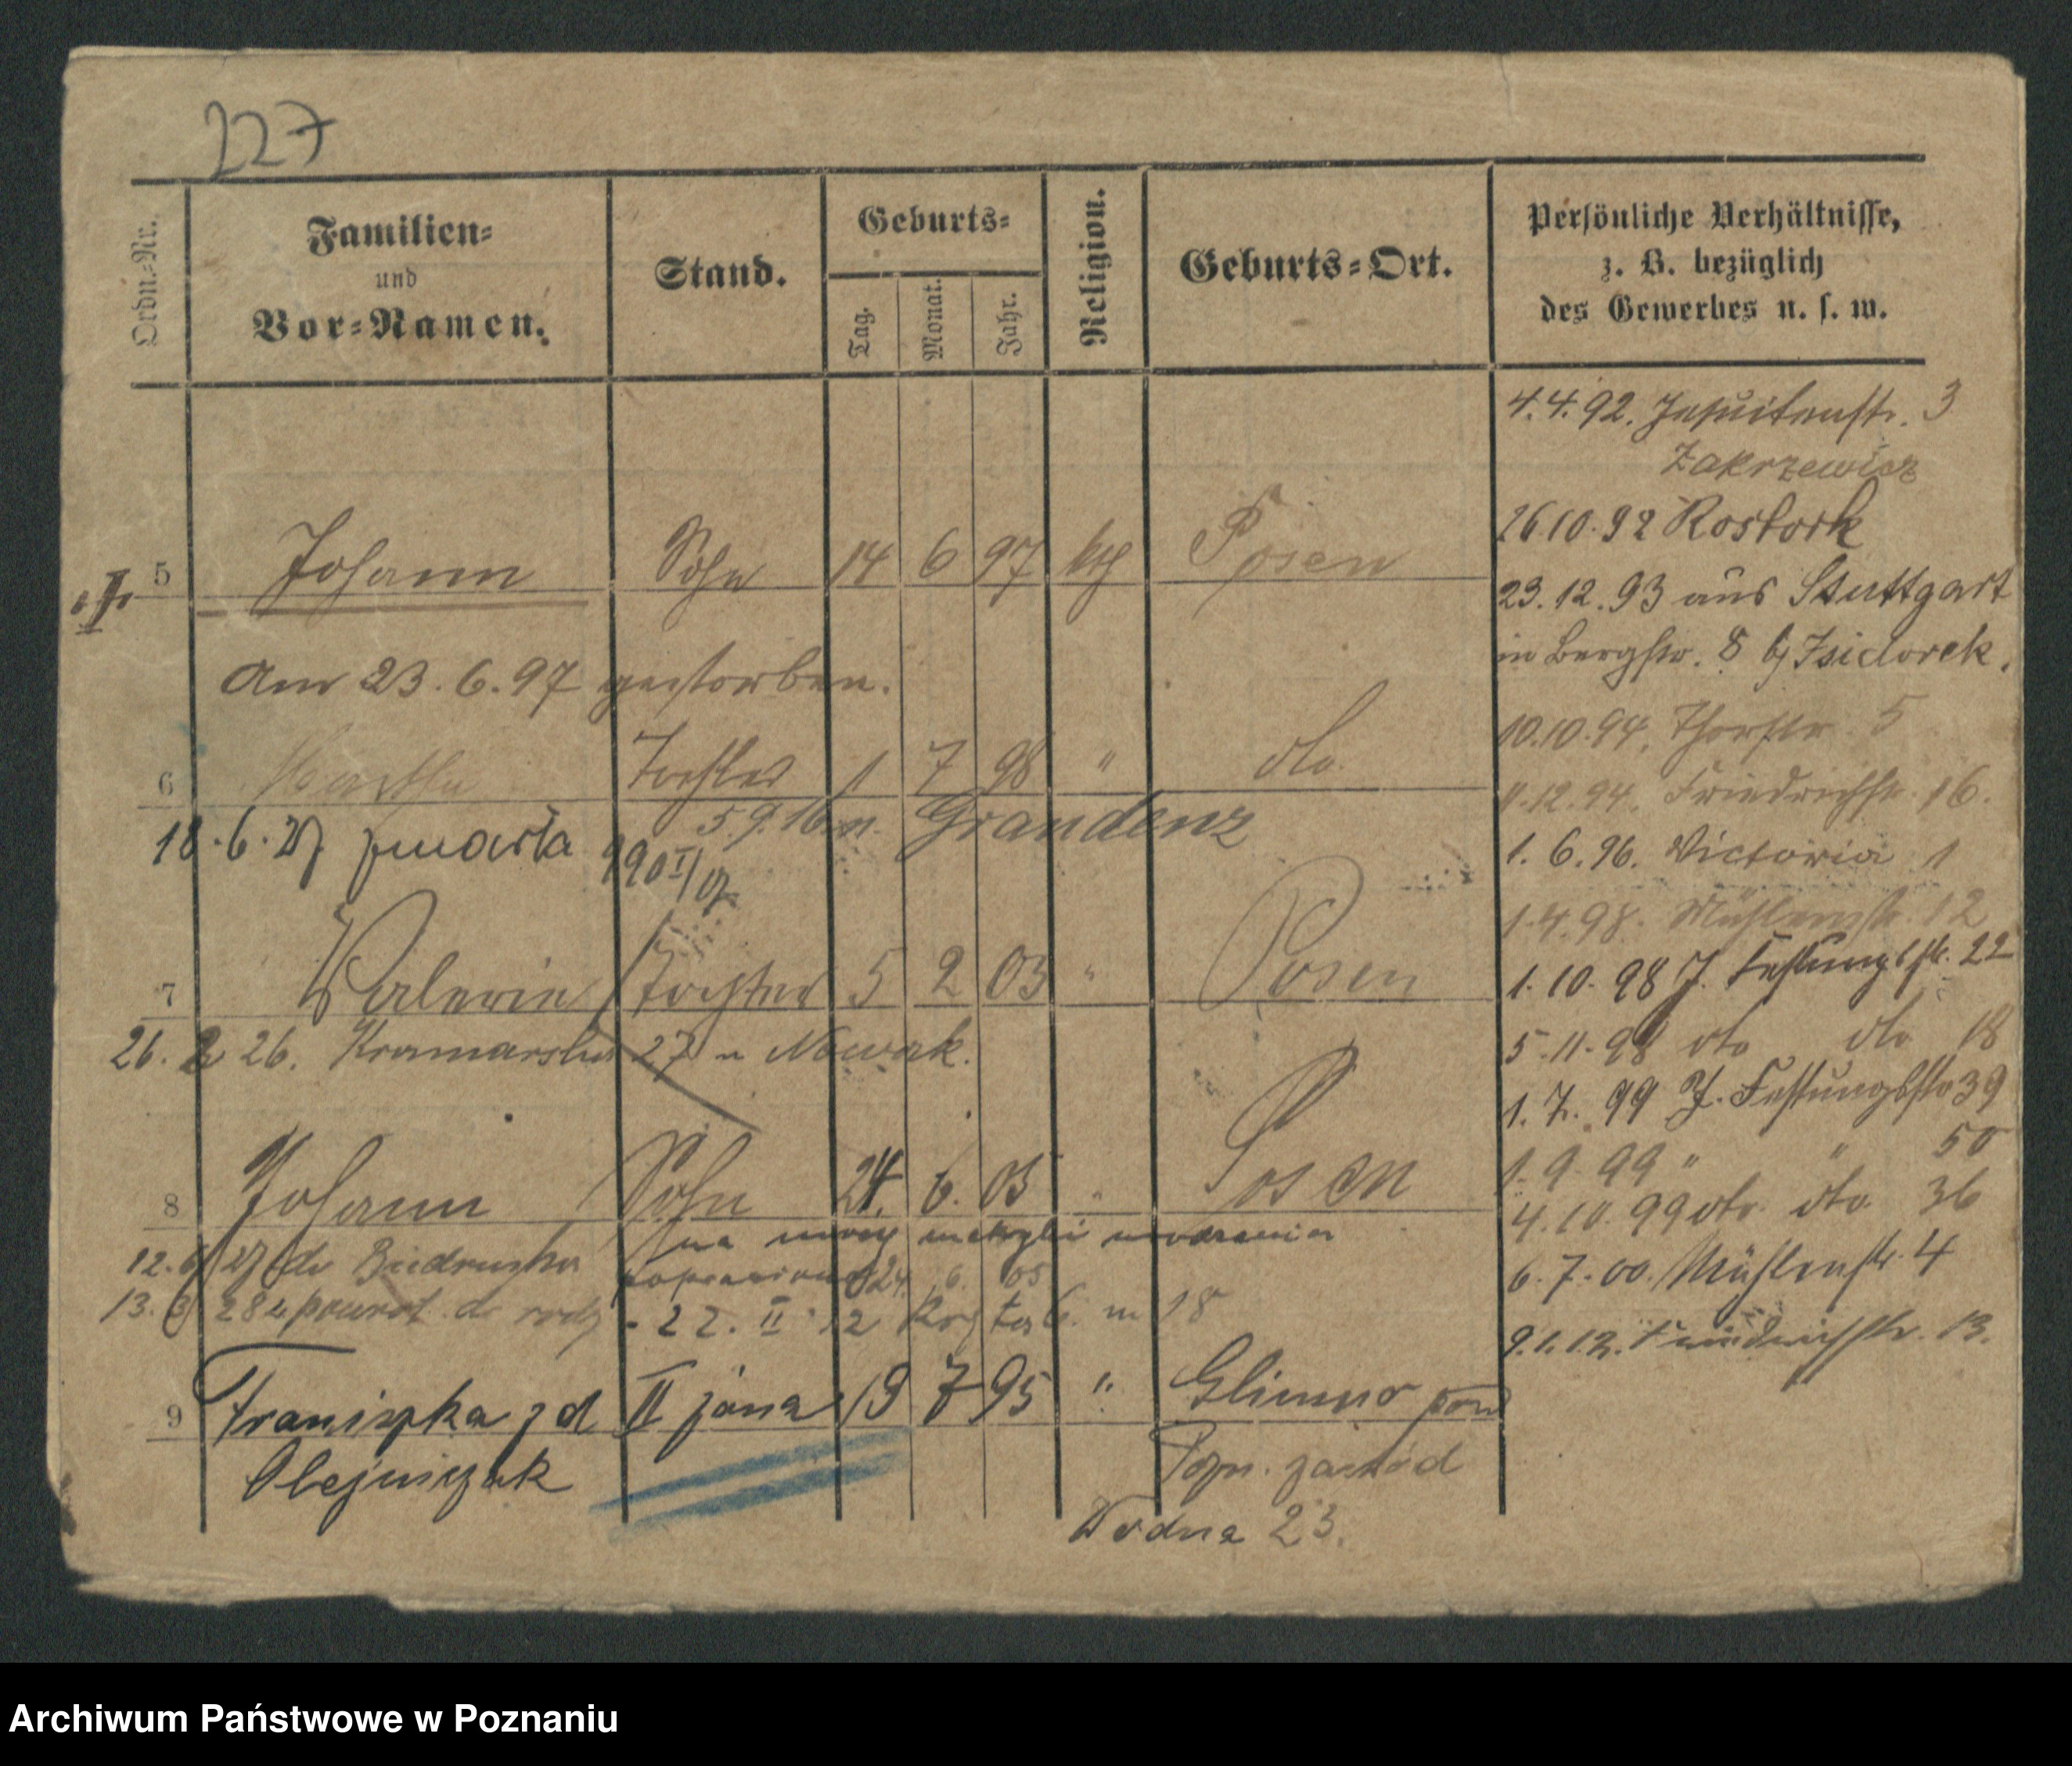 227
Ordn.-Nr.
Familien-
und
Vor-Namen.
Stand.
Geburts-
Tag.
Monat.
Jahr.
Religion.
Geburts-Ort.
Persönliche Verhältnisse,
z. B. bezüglich
des Gewerbes u. s. w.
5 Johann Sohn 14 6 97 kth Posen
Am 23.6.97 gestorben.
6 Martha Tochter 1 7 98 " dto.
5.9.16 n. Graudenz
18.6.27 zmarła 190 I/27
7 Valerie Tochter 5 2 03 " Posen
26. 26. Kramarska 27 u Nowak.
8 Johann Sohn 24. 6. 05 " Posen
na mocy metryki urodzenia
12.6 27 do Biedruska poprawiono 24. 6. 05
13.3 28 z powrot. do rodz - 22. II 12 m 18
9 Franiszka z d II żona 19 7 95 " Glinno pow
Olejniczak Pozn. zawód
Wodna 23.
4.4.92. Jesuitenstr. 3
Zakrzewicz
26 10.92 Rostock
23.12.93 aus Stuttgart
in Bergstr. 8 bj Isidorek.
10.10.94. Thorstr. 5
11.12.94. Friedrichstr. 16.
1.6.96. Victoria 1
1.4.98. Mühlenstr. 12
1.10.98 J. Festungsstr. 22
5.11.98 dto dto 18
1.7.99 J. Festungsstr 39
1.9.99 " " 50
4.10.99 dto. dto. 36
6.7.00. Mühlenstr. 4
9.1.12. Friedrichstr. 13.
Archiwum Państwowe w Poznaniu